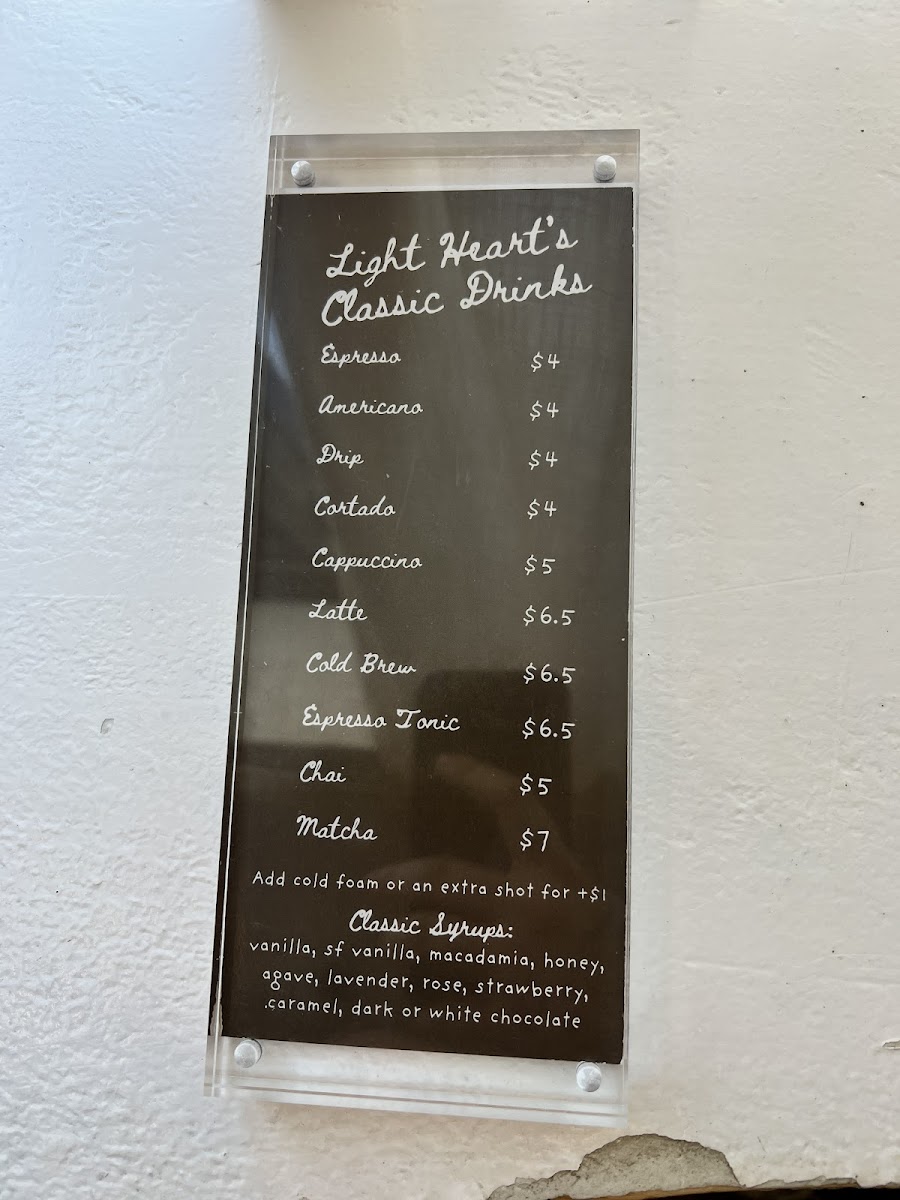 Light Heart's
Classic Drinks
Espresso $4
Americano $4
Drip $4
Cortado $4
Cappuccino $5
Latte $6.5
Cold Brew $6.5
Espresso Tonic $6.5
Chai $5
Matcha $7
Add cold foam or an extra shot for +$1
Classic Syrups:
vanilla, sf vanilla, macadamia, honey,
agave, lavender, rose, strawberry,
caramel, dark or white chocolate